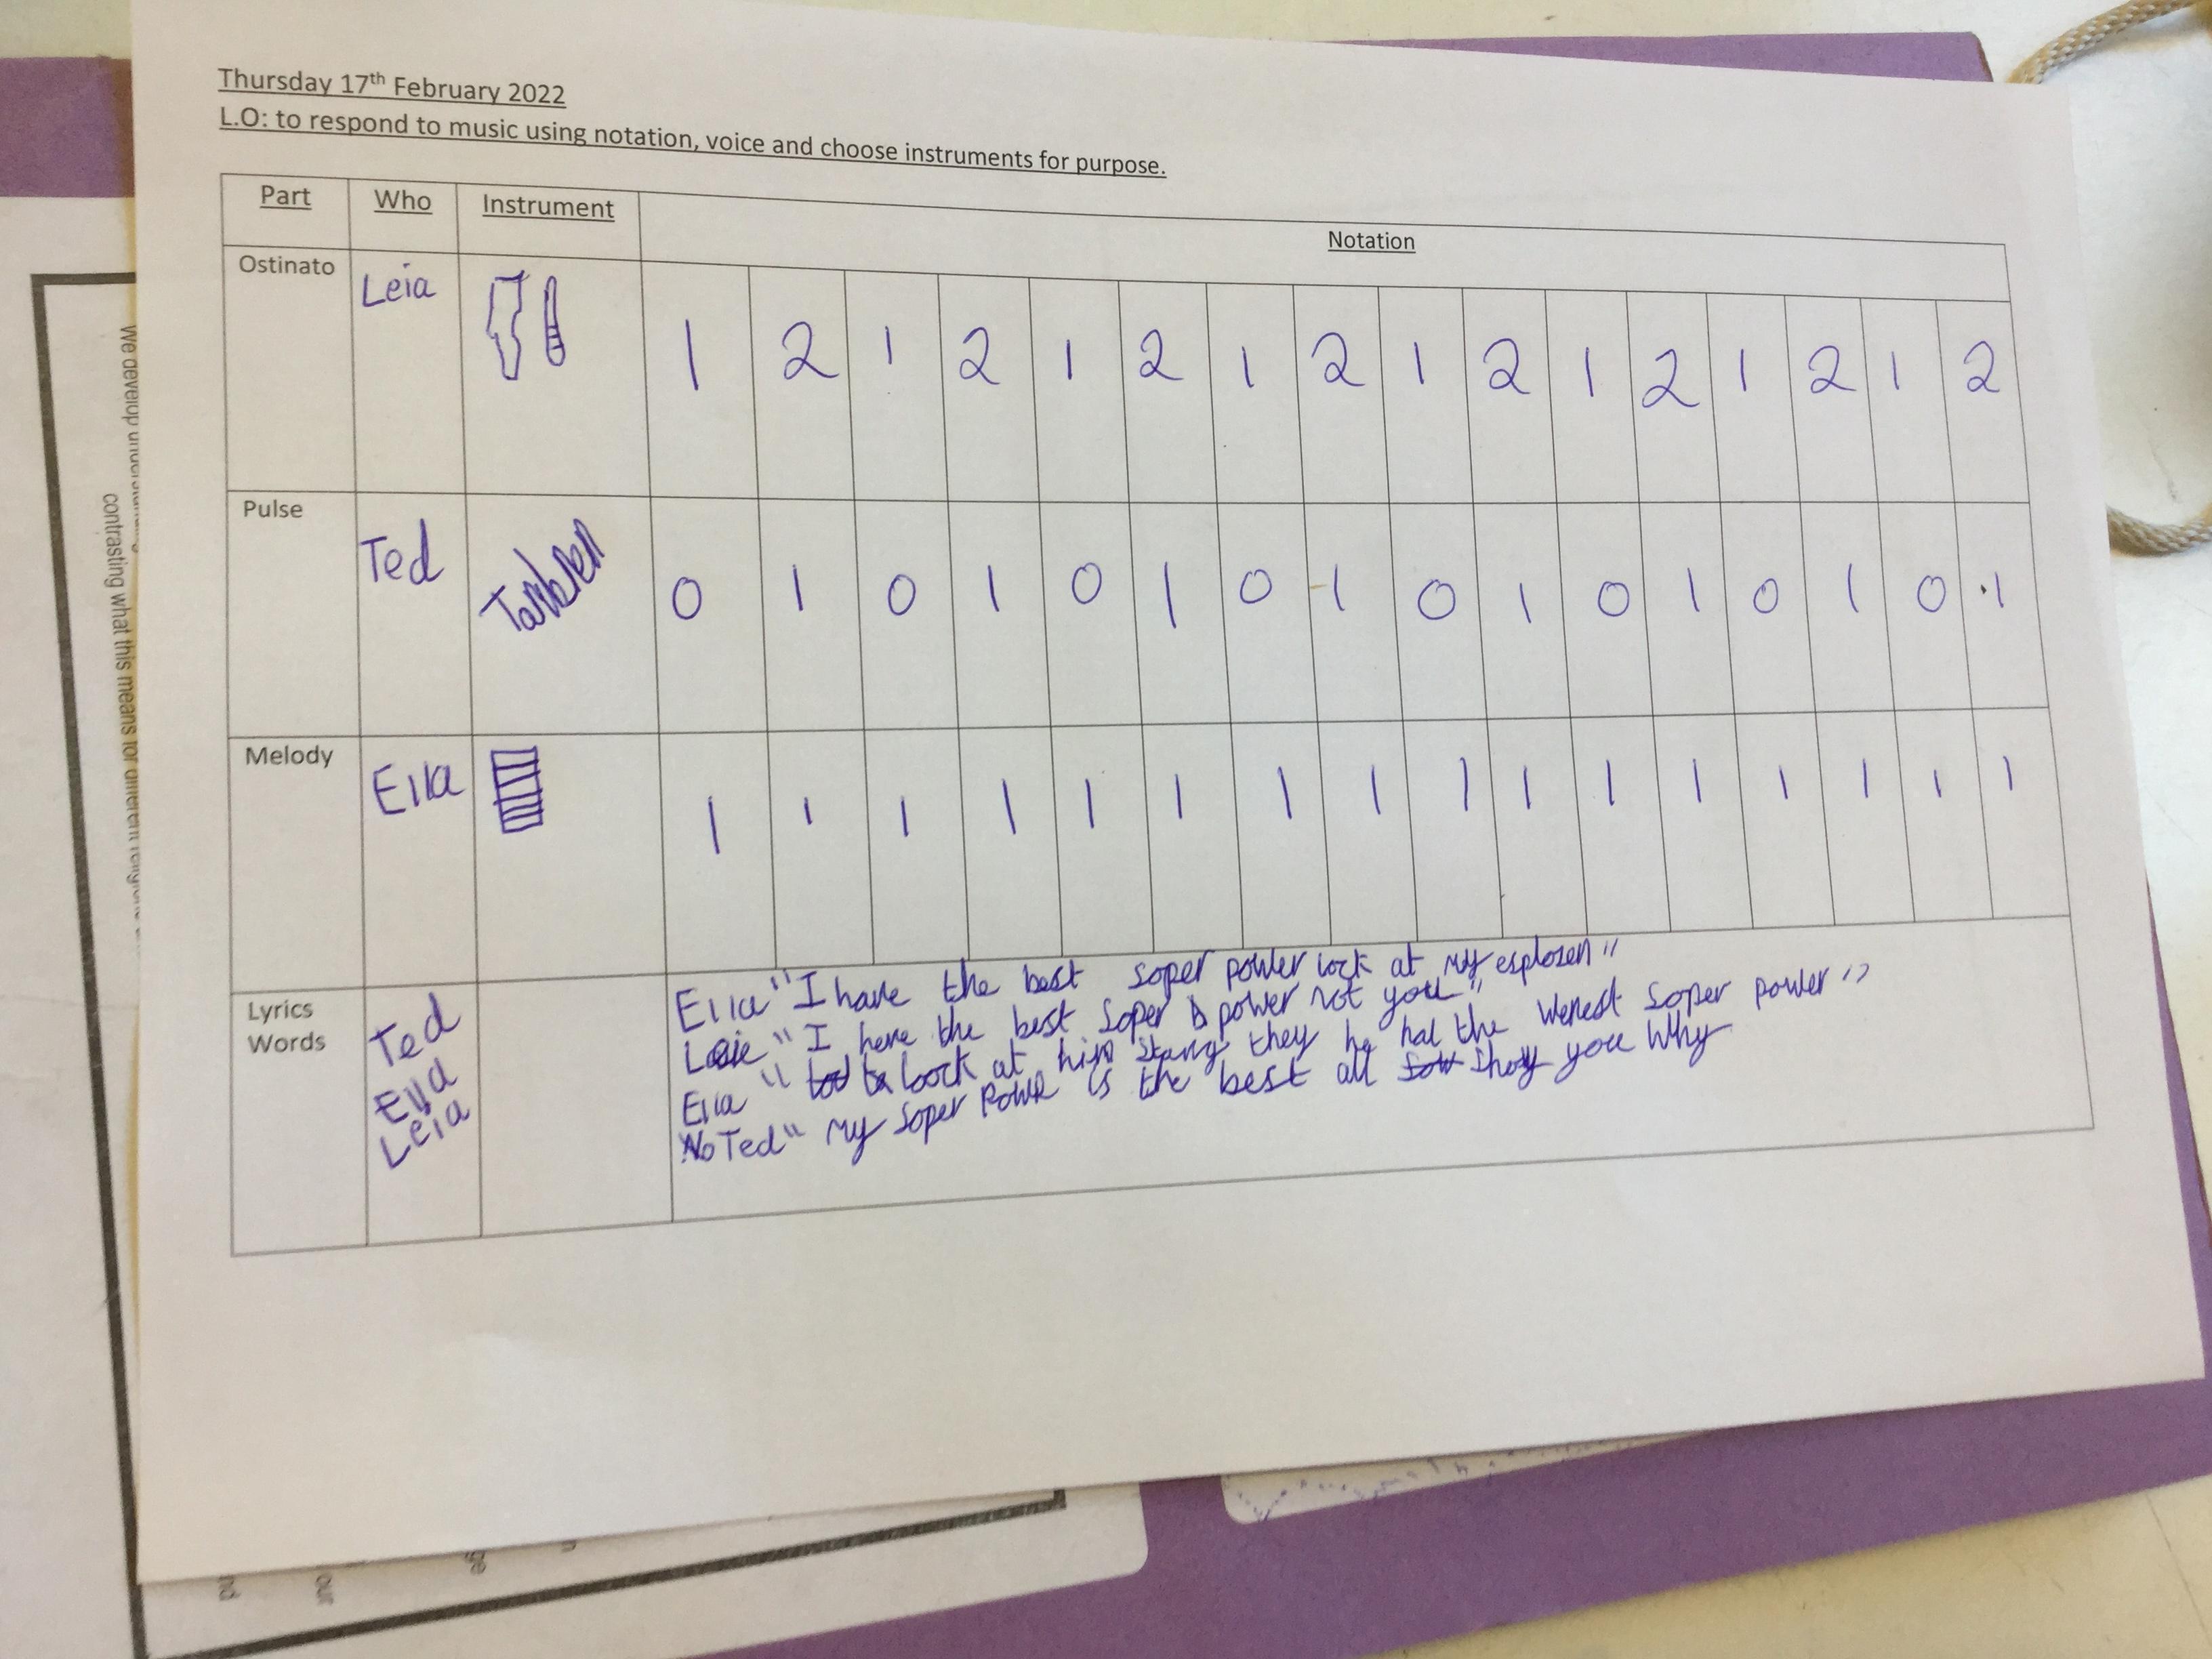 Thursday 17th February 2022
L.O: to respond to music using notation, voice and choose instruments for purpose.
Part Who Instrument Notation
Ostinato Leia 1 2 1 2 1 2 1 2 1 2 1 2 1 2 1 2
Pulse Ted 0 1 0 1 0 1 0 1 0 1 0 1 0 1 0 1
Melody Ella 1 1 1 1 1 1 1 1 1 1 1 1 1 1 1 1
Lyrics
Words
Ted
Ella
Leia
Ella "I have the best soper power lock at my esplozen"
"I here the best soper power not you"
Ella " loock at him they he hal the wenest soper power"
Ted" my soper is the best all shoy you why
We develop
contrasting what this means for different
ge
our
nd